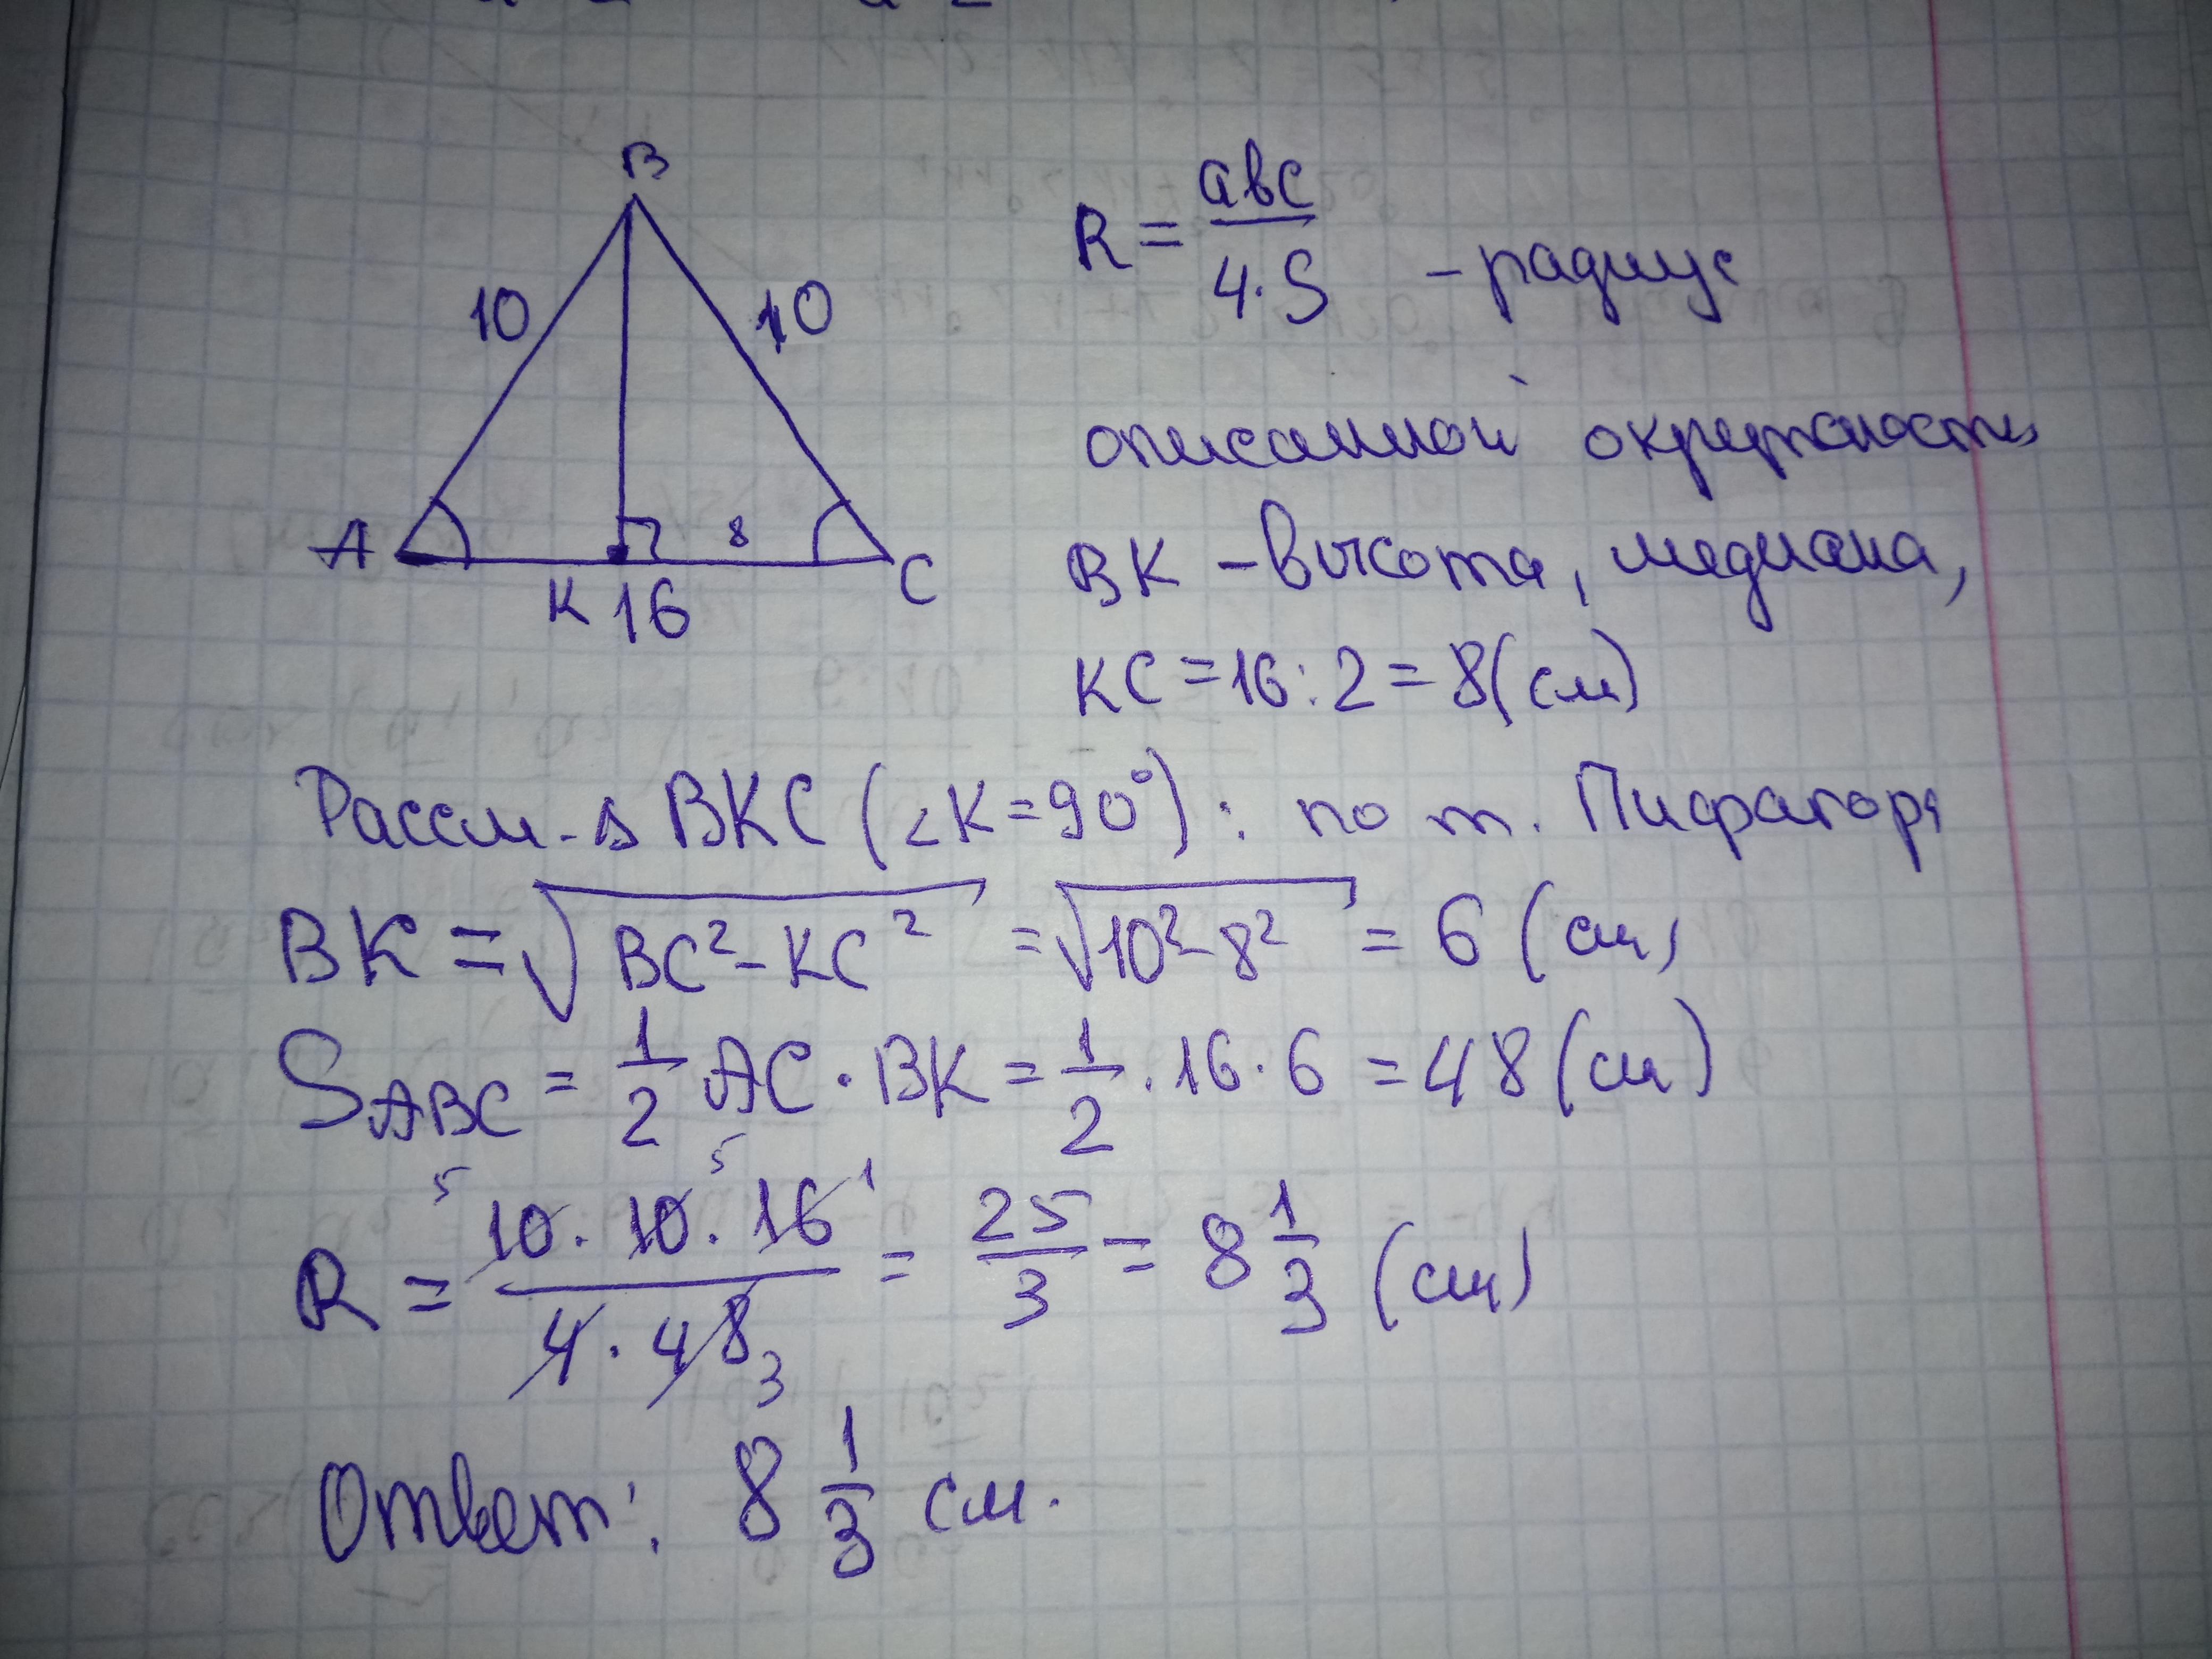 B
10
10
A
8
C
K 16
R = abc / 4·S - радиус
описанной окружности
BK - высота, медиана,
KC = 16 : 2 = 8 (см)
Рассм - Δ BKC (∠K = 90°) : по т. Пифагора
BK = √(BC² - KC²) = √(10² - 8²) = 6 (см)
S ABC = 1/2 AC · BK = 1/2 · 16 · 6 = 48 (см)
5 5 1
R = 10 · 10 · 16 / 4 · 48 = 25/3 = 8 1/3 (см)
3
Ответ: 8 1/3 см.